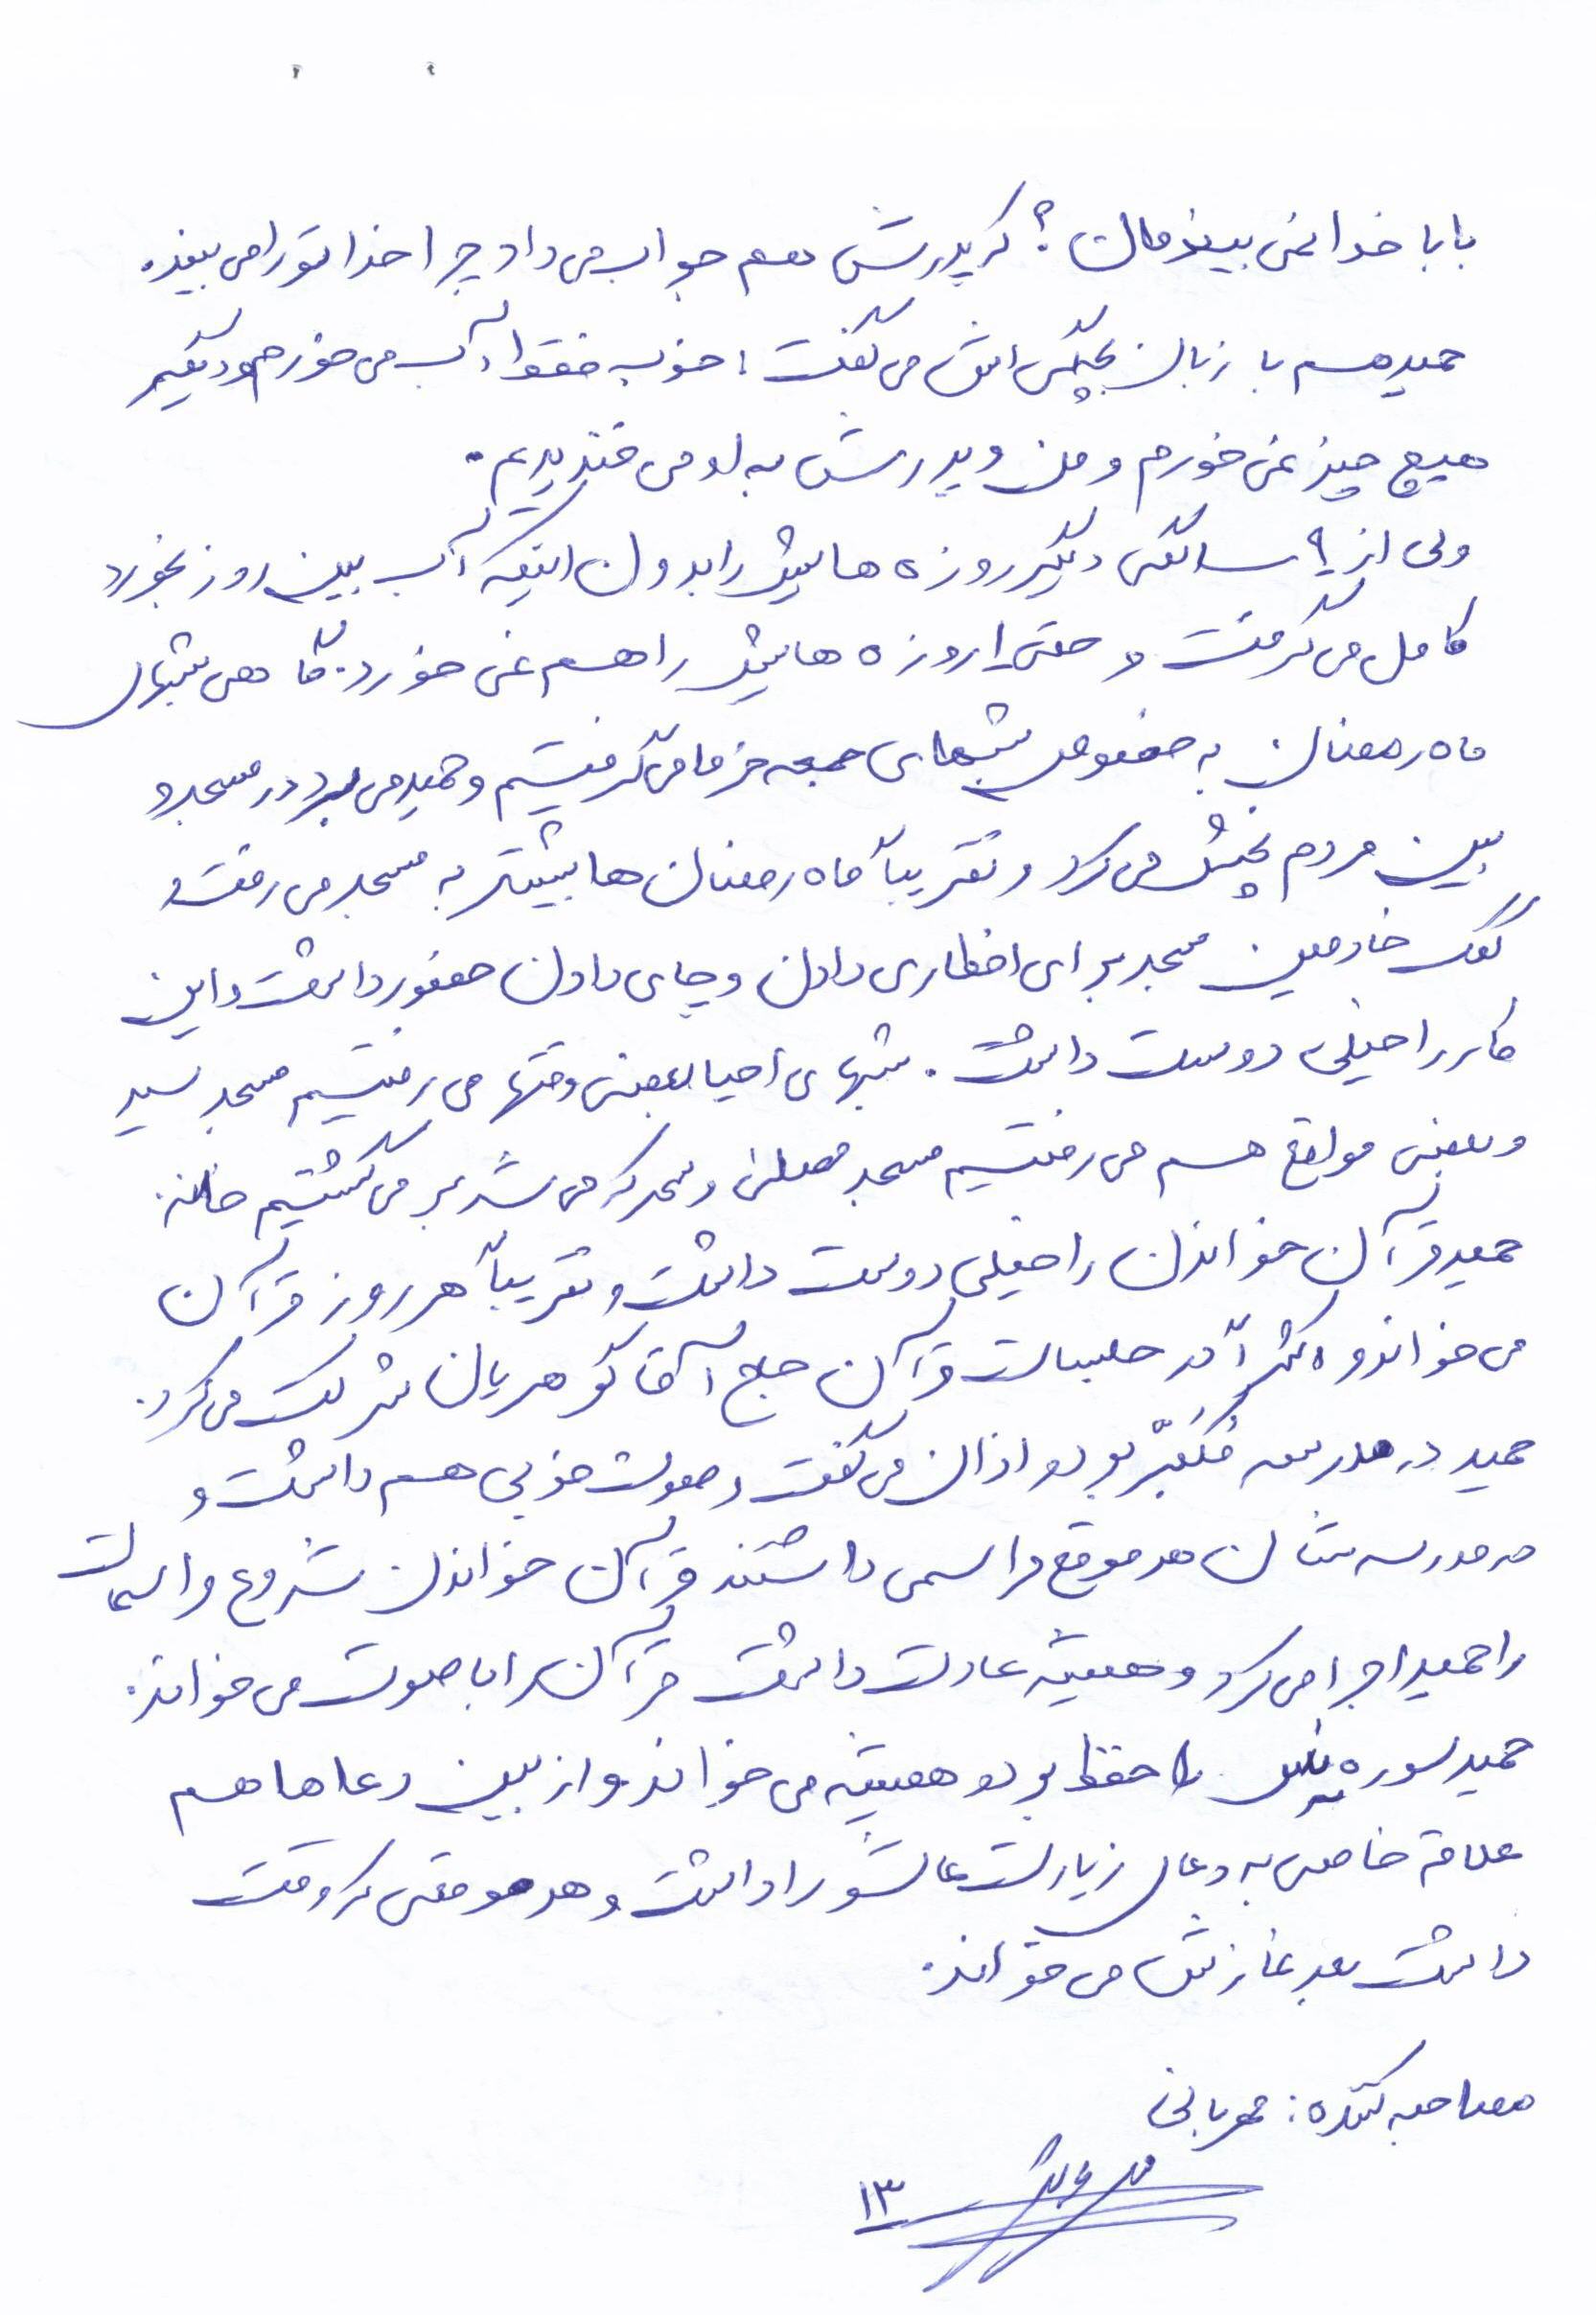 بابا خدا نمی بیندمان؟ که پدرش هم جواب می داد چرا خدا تو را می بیند.
حمید هم با زبان بچگی اش می گفت: خوب فقط آب می خورم و دیگر
هیچ چیز نمی خورم و من و پدرش به او می خندیدیم.
ولی از ۹ سالگی دیگر روزه هایش را بدون اینکه آب بین روز بخورد
کامل می گرفت و حتی ۱ روزه هایش را هم نمی خورد. گاهی شبهای
ماه رمضان به خصوص شبهای جمعه خرما می گرفتیم و حمید می برد در مسجد و
بین مردم پخش می کرد و تقریباً ماه رمضان ها بیشتر به مسجد می رفت و
کمک خادمین مسجد برای افطاری دادن و چای دادن حضور داشت و این
کار را خیلی دوست داشت. شبهای احیا بعضی وقتها می رفتیم مسجد سید
و بعضی مواقع هم می رفتیم مسجد مصلی و سحر که می شد بر می گشتیم خانه.
حمید قرآن خواندن را خیلی دوست داشت و تقریباً هر روز قرآن
می خواند و اکثراً در جلسات قرآن حاج آقا گوهریان شرکت می کرد.
حمید در مدرسه مکبّر بود و اذان می گفت و صوت خوبی هم داشت و
در مدرسه شان هر موقع مراسمی داشتند قرآن خواندن شروع مراسمات
را حمید اجرا می کرد و همیشه عادت داشت قرآن را با صوت می خواند.
حمید سوره یس را حفظ بود و همیشه می خواند و از بین دعاها هم
علاقه خاصی به دعای زیارت عاشورا داشت و هر موقعی که وقت
داشت بعد نمازش می خواند.
مصاحبه کننده: مهربانی
۱۳